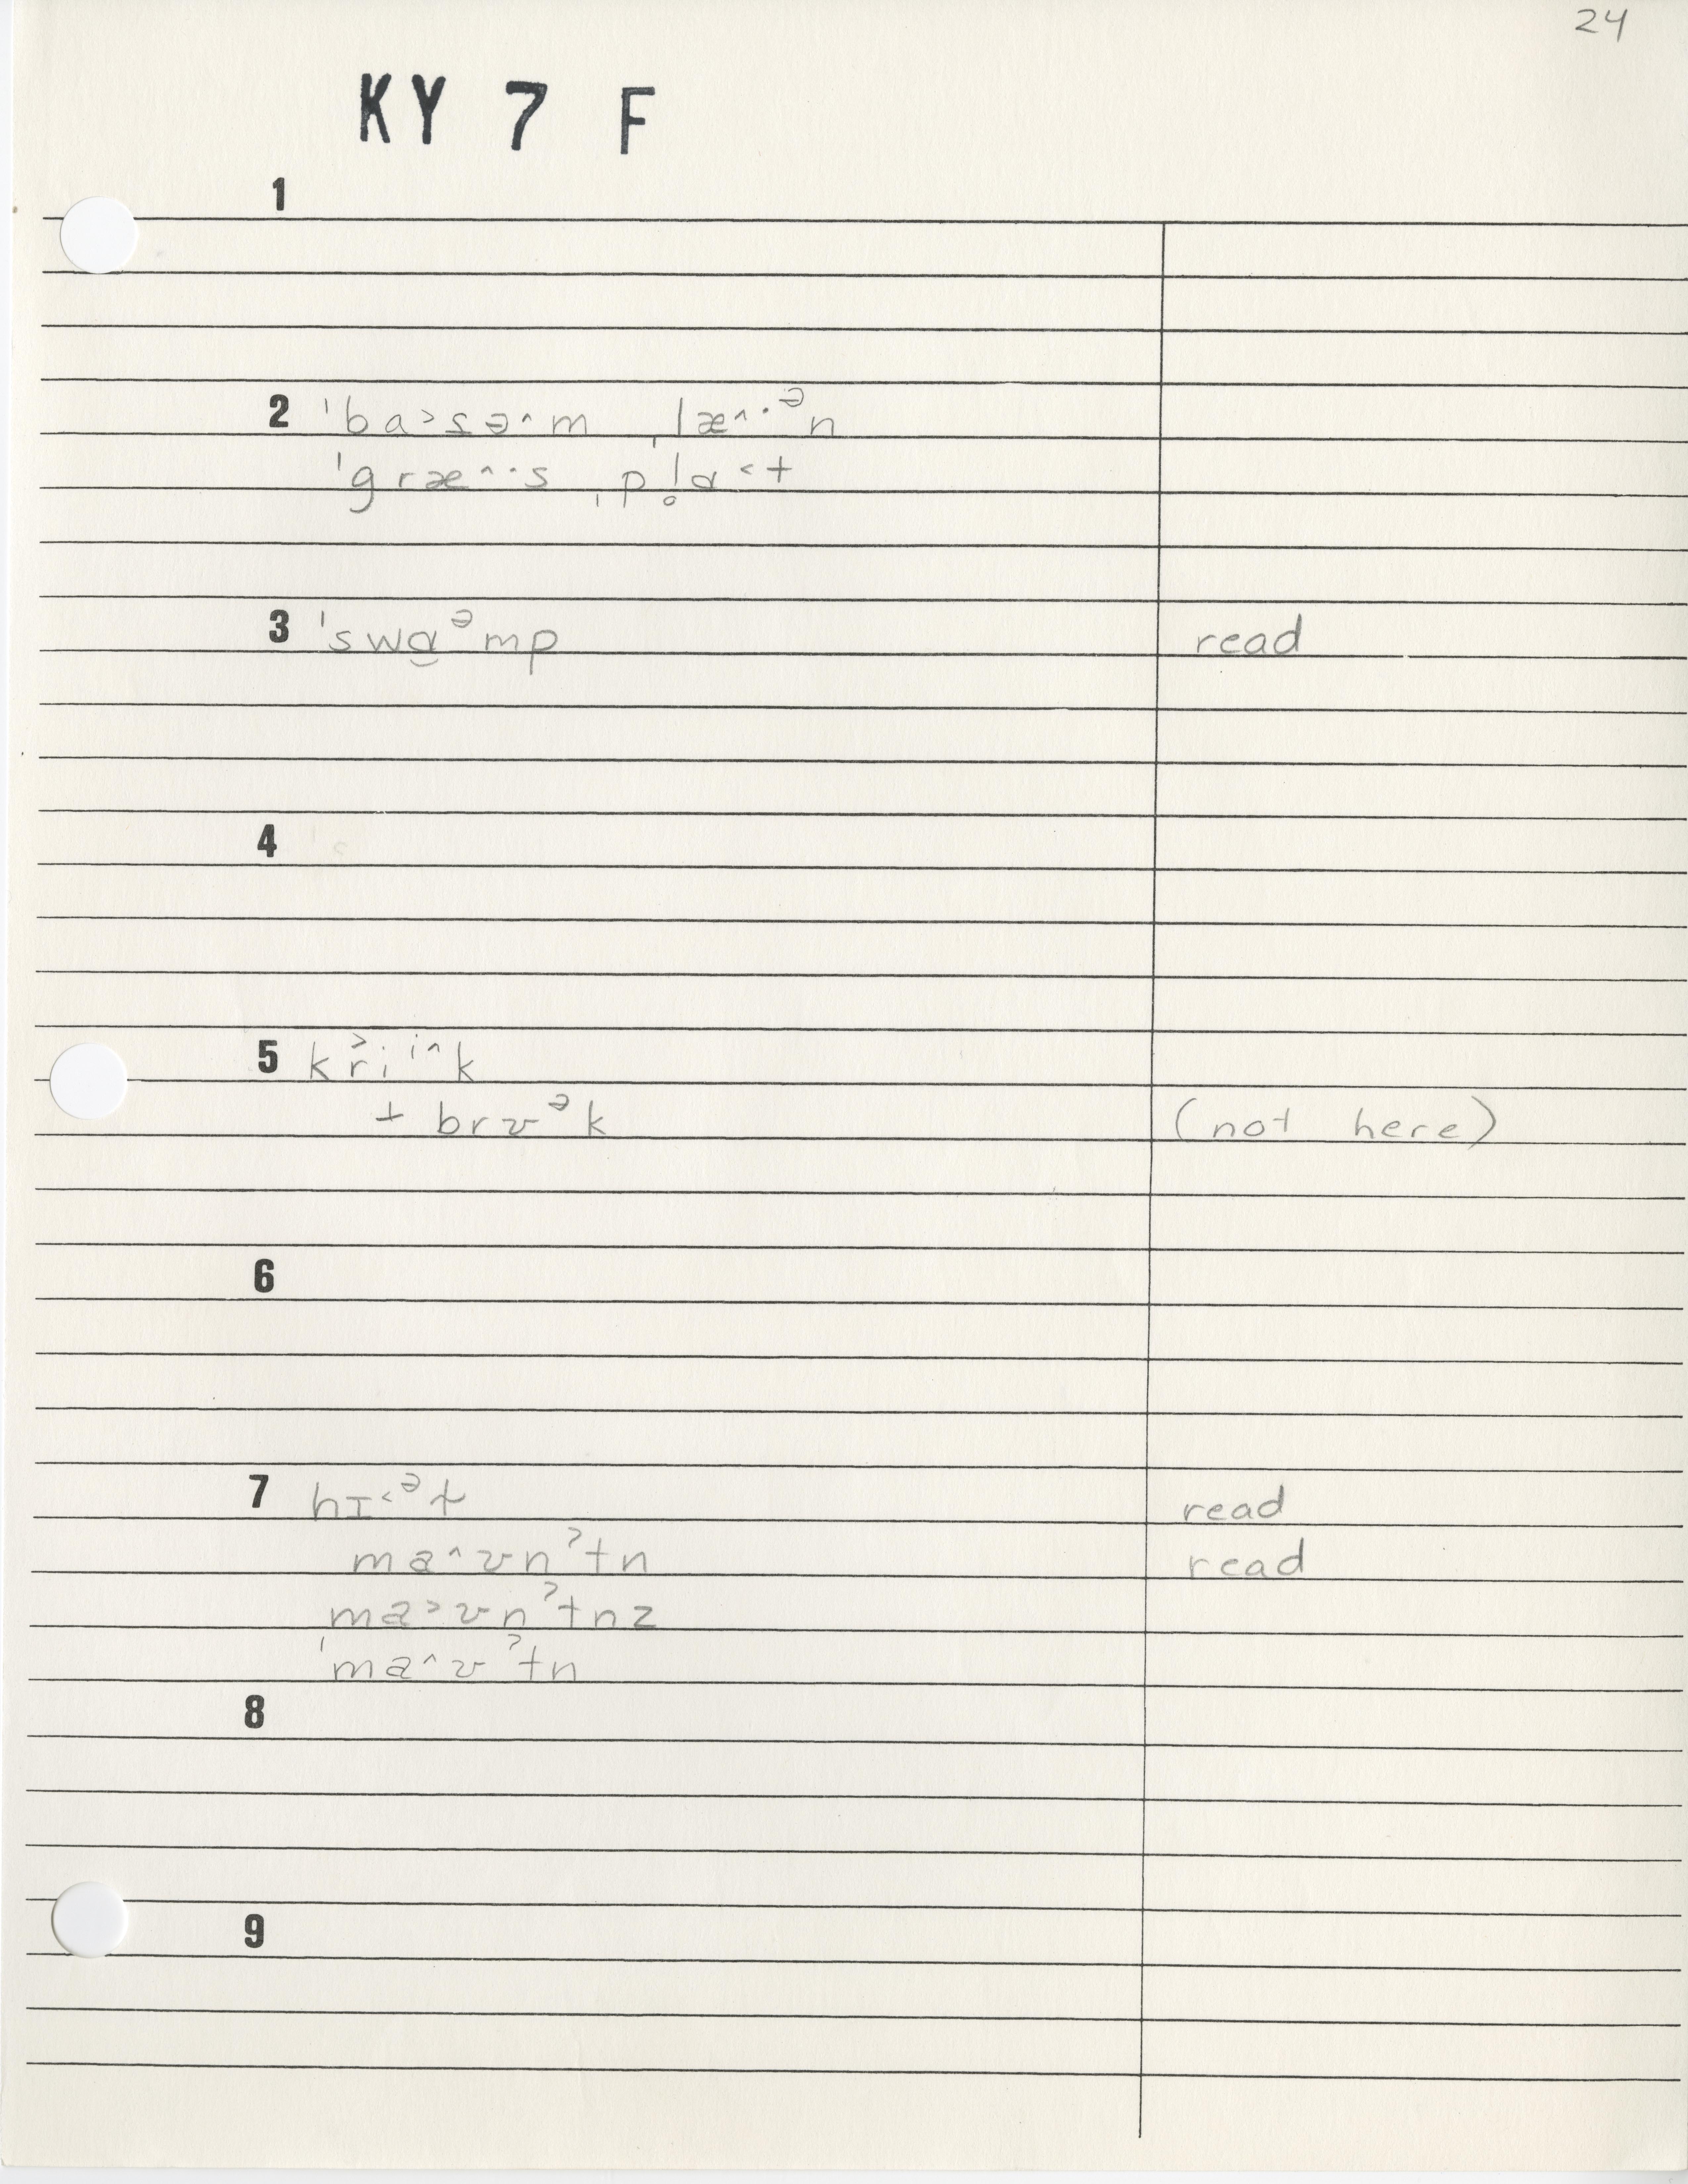 24
KY 7 F
1
2 ˈba˃s̱ə˄m ˌlæ˄·ᵊn
ˈgræ˄·s ˌpl̥ɑ˂t
3 ˈswɑ̱ᵊmp read
4
5 kr̆iⁱ˄k
+ brʊᵊk (not here)
6
7 hɪ˂ᵊɫ read
ma˄ʊnˀtn read
ma˃ʊnˀtnz
ˈma˄ʊˀtn
8
9